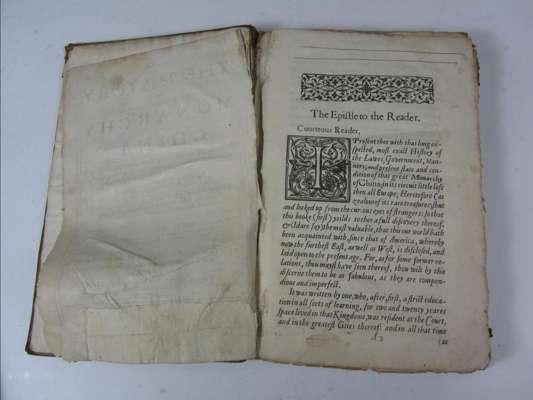 The Epistle to the Reader.
Courteous Reader,
I Present thee with that long ex-
pected, most exact History of
the Lawes, Government, Man-
ners, and present state and con-
dition of that great Monarchy
of China, in its circuit little less
then all Europe, Heretofore (as
zealous of its rare treasures) shut
and locked up from the curious eyes of strangers: so that
this booke (first) yeilds to thee a full discovery thereof,
& (I dare say) the most valuable, that this our world hath
been acquainted with, since that of America, whereby
now the furthest East, as well as West, is disclosed, and
laid open to the present age. For, as for some former re-
lations, thou mayst have seen thereof, thou wilt by this
discerne them to be as fabulous, as they are compen-
dious and imperfect.
It was written by one, who, after, first, a strict educa-
tion in all sorts of learning, for two and twenty yeares
space lived in that Kingdome, was resident at the Court,
and in the greatest Cities thereof: and in all that time